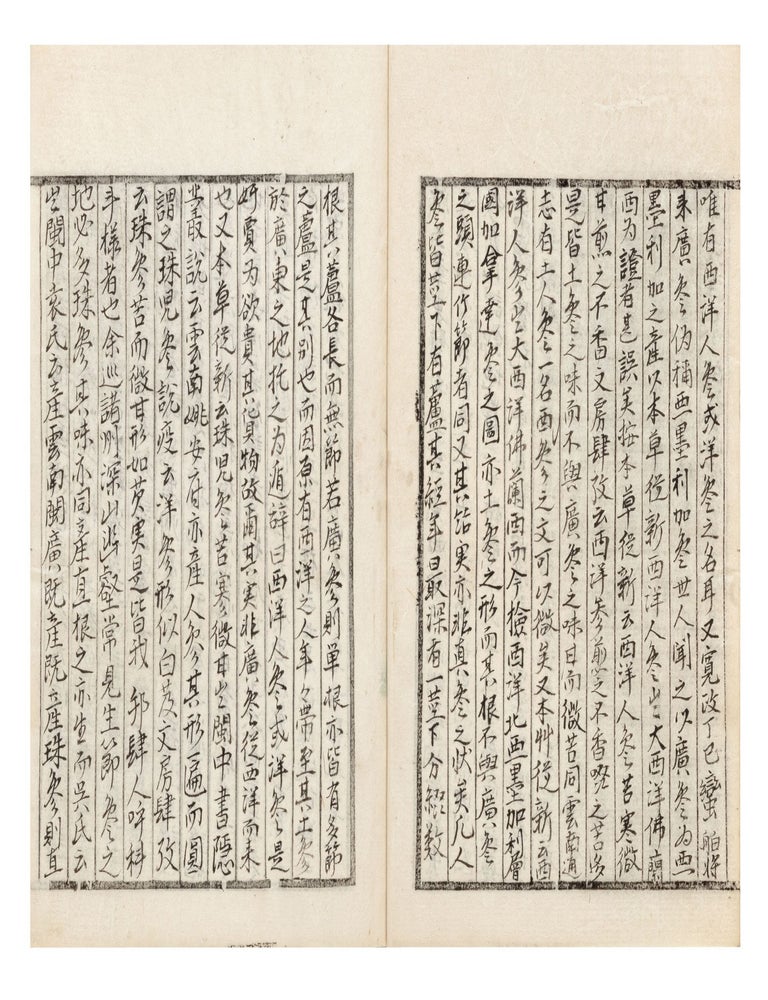 唯有西洋人參或洋參之名耳又寬政丁巳蠻舶將
来廣參偽稱亜墨利加參世人聞之以廣參為亜
墨利加之產以本草從新西洋人參出大西洋佛蘭
西為證者甚誤矣按本草從新云西洋人參苦寒微
甘煎之不香文房肆攷云西洋参煎之不香嚼之苦
是皆土參之味而不與廣參之味甘而微苦同雲南通
志有土人參一名西參之文可以徴矣又本艸從新云西
洋人參出大西洋佛蘭西而今撿西洋北亜墨加利
國加拿達參之圖亦土參之形而其根不與廣參
之頭連作節者同又其結実亦非真參之状矣凡人
參皆莖下有蘆其經年日最深有一莖下分數
根其蘆各長而無節若廣參則單根亦皆有多節
之蘆是其別也而因原有西洋之人年々帶至其土參
於廣東之地托之为遁辞曰西洋人參或洋參是
奸賣为欲貴其貨物故爾其实非廣參從西洋而来
也又本草從新云珠児參苦寒微甘出閩中書隠
叢說云雲南姚安府亦產人參其形扁而圓
謂之珠児參說疫云洋參形似白芨文房肆攷
云珠參苦而微甘形如芡実是皆我邦肆人呼
様者也余巡諸州深山幽壑常見生節參之
地必多珠參其味亦同產直根之亦生而吳氏云
出閩中袁氏云產雲南閩廣既產既產珠參則直